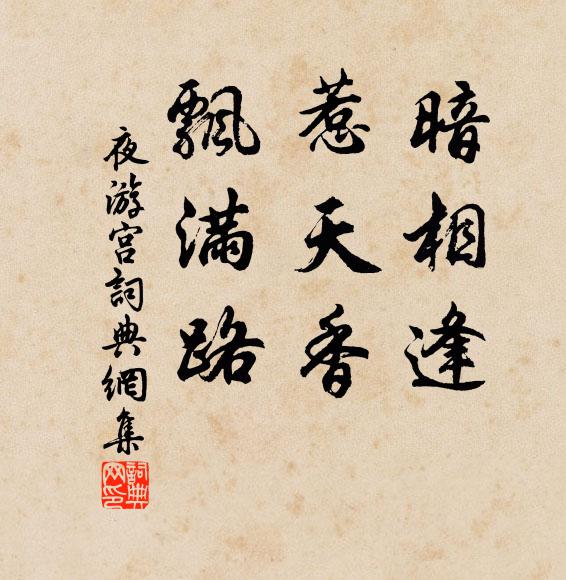 暗相逢
惹天香
飄滿路
夜游宮詞典網集
詞典网印